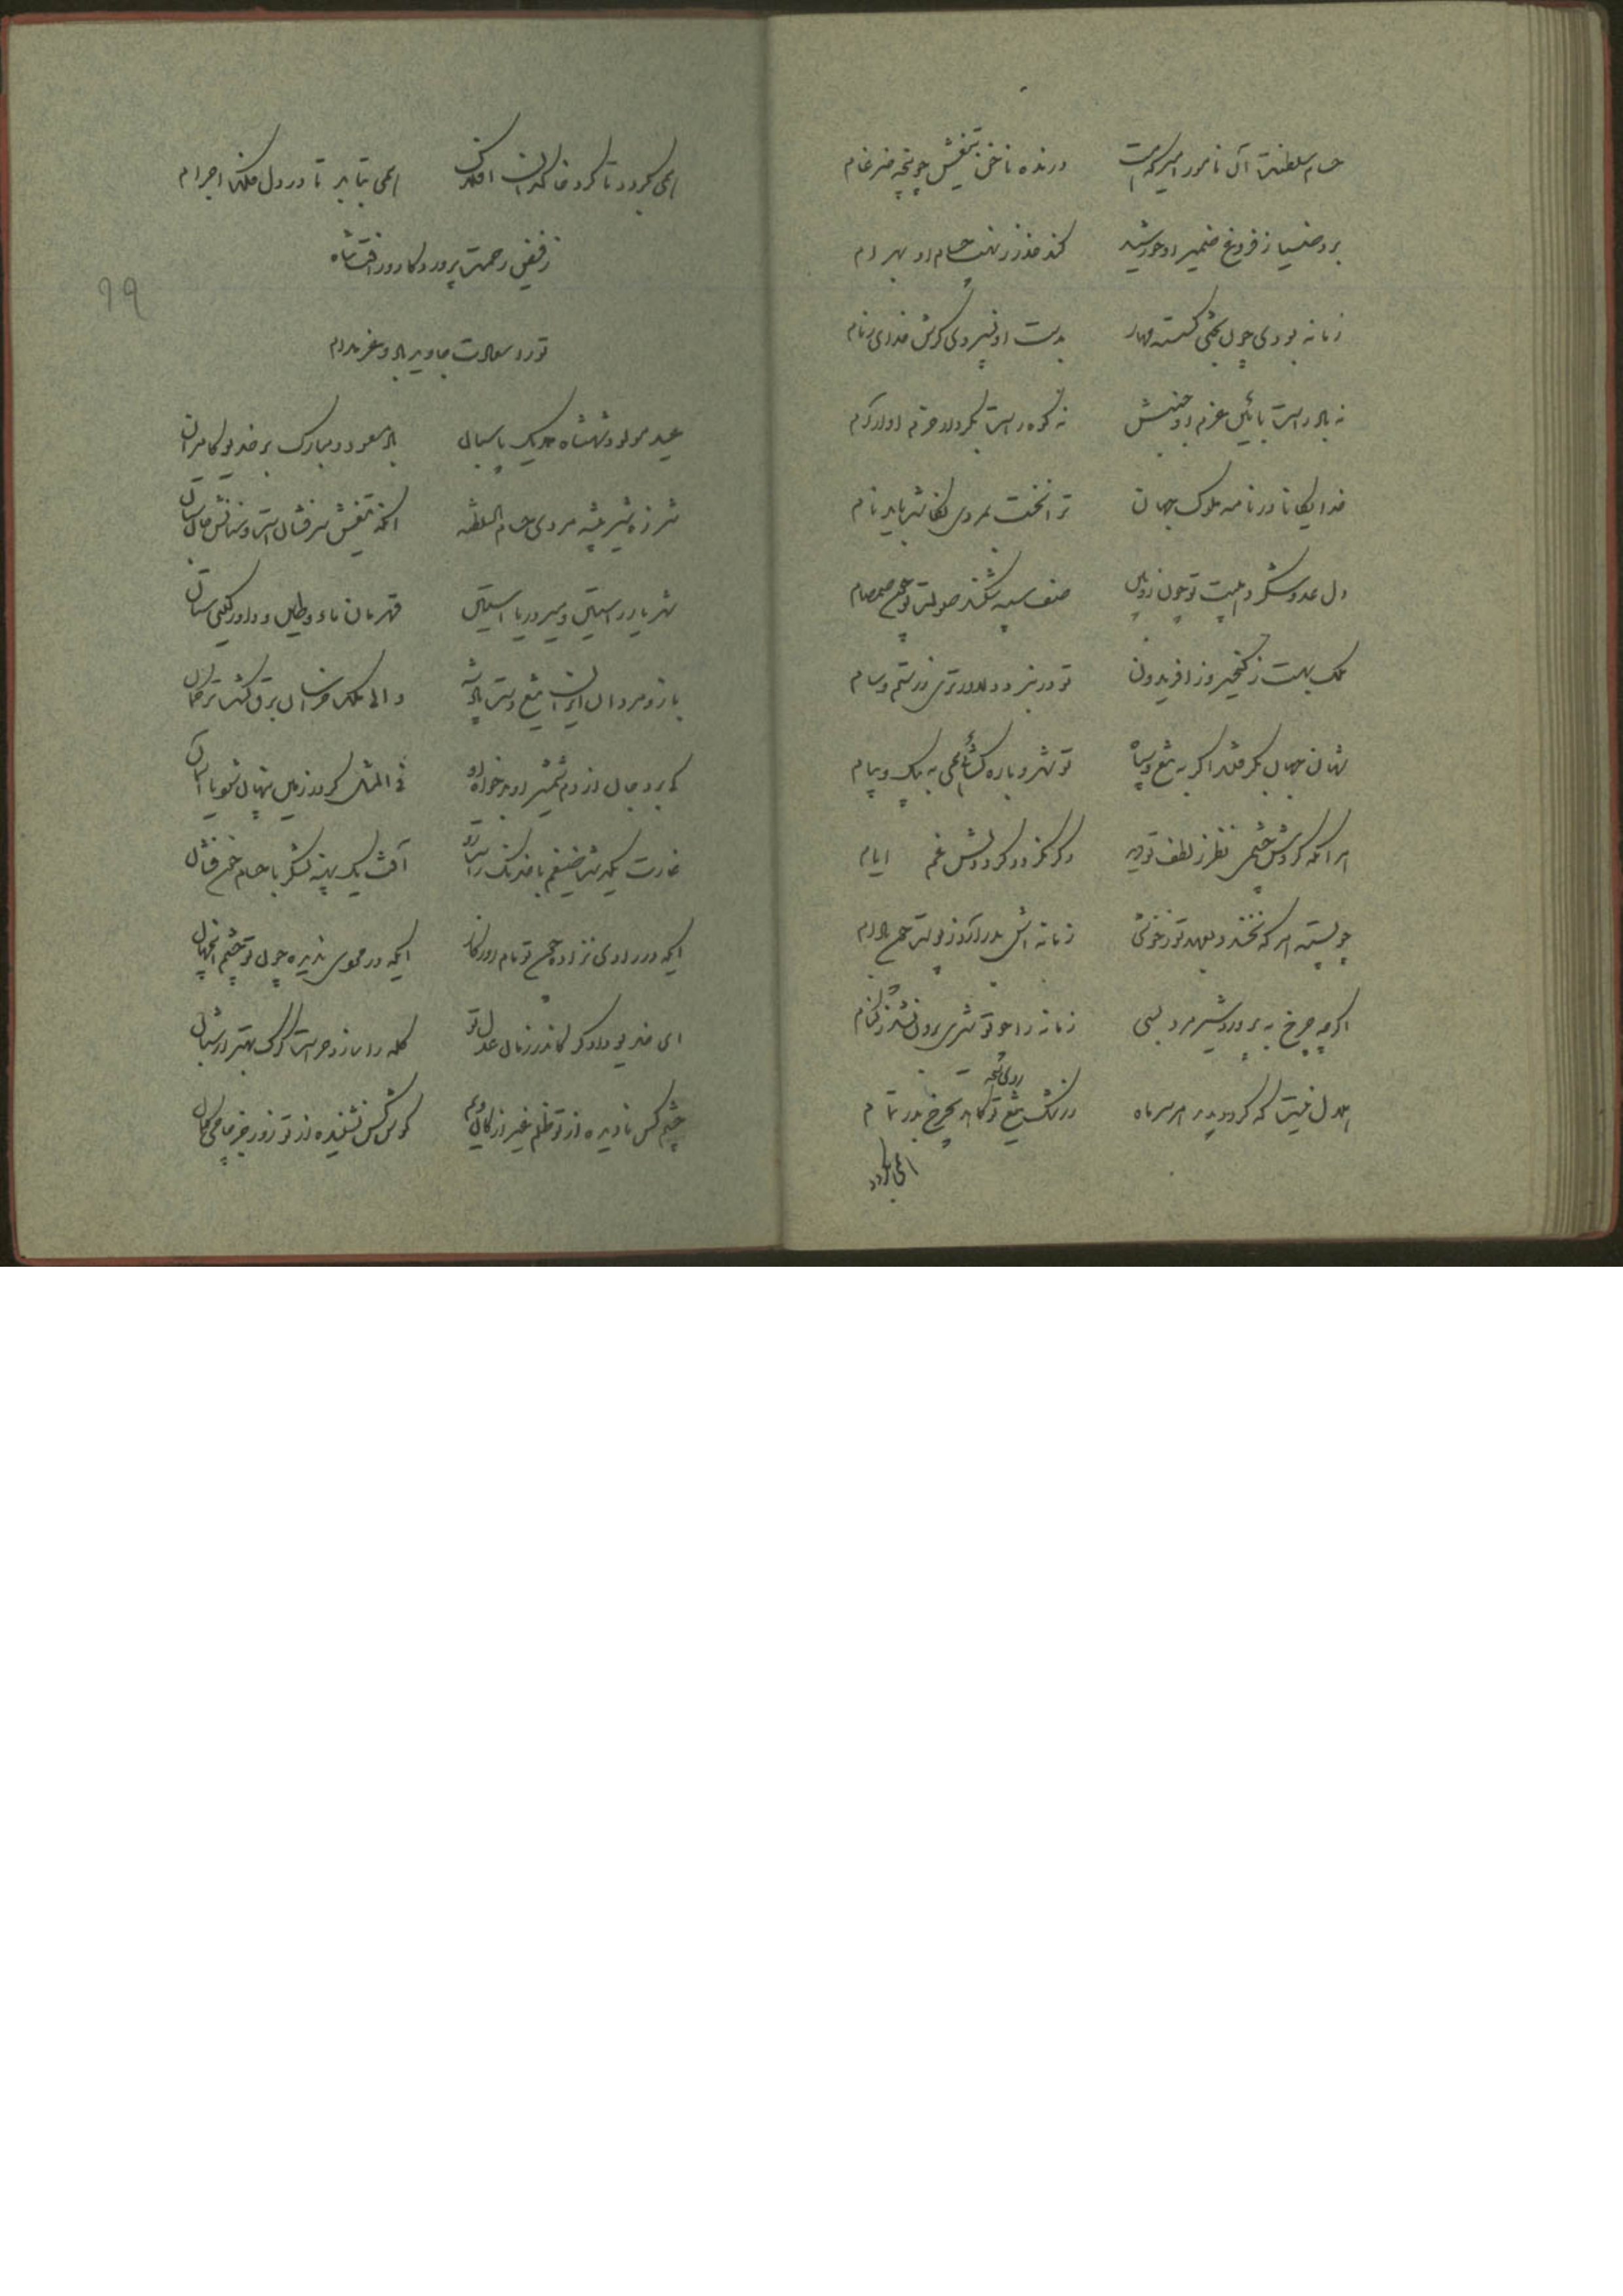 حسام سلطنت آن نامور امیر که هست درنده ناخن تیغش چو پنجه ضرغام
برد ضیا ز فروغ ضمیر او خورشید کند حذر ز نهیب حسام او بهرام
زمانه بودی چون بختی گسسته مهار بدست او نپیروی کرش خدای زمام
نه باد راست بآئین عزم او جنبش نه کوه راست بکردار حزم او آرام
خدایگانا در نامه ملوک جهان ترا نخست بمردی نگاشت باید نام
دل عدو شکرد هیبت تو چون زوبین صف سپه شکند صولت تو چون صمصام
ملک بهت ز کیخسرو و ز افریدون تو در نبرد دلاورتری ز رستم و سام
شهان جهان بگرفتند اگر به تیغ و سپاه تو شهر و باره گشائی همی به پیک و پیام
هر آنکه گردش چشمی نظر ز لطف تو دید دگر نگردد گرد دلش غم ایام
چو پسته هر که نخندد بعهد تو ز خوشی زمانه اش بدر آرد ز پوست چون بادام
اگر چه چرخ به پرورد شیر مرد بسی زمانه را چو تو شیری برون نشد ز کنام
هلال نیست که گردد پدید هر سر ماه ز رشک تیغ تو کاهد بچرخ بدر تمام
روی نجه
همی بگردد
همی بگردد تا گرد خاکدان افلاک همی بتابد تا در دل فلک اجرام
ز فیض رحمت پروردگار و ز افتشاه
69
تو را سعادت جاوید باد و عز مدام
عید مولود شهنشاه ملایک پاسبان باد مسعود و مبارک بر خدیو کامران
شرزه شیر بیشه مردی حسام السلطنه آنکه تیغش سرفشان است و سنانش جان ستان
شهریار راستین و میر دریا آستین قهرمان ماء و طین و داور گیتی ستان
بازو مردان ایران تیغ و والی ملک خراسان برق کشت ترکمان
کی برد جان از دم شمشیر او بدخواه او فی المثل گر در زمین پنهان شود یا آسمان
غارت یک بیشه ضیغم با خدنگ آفت یک پهنه لشکر با حسام خون فشان
ایکه در رادی نزاده چون تو مام روزگار ایکه در مردی ندیده چون تو چشم آسمان
ای خدیو دادگر کاندر زمان عدل تو گله را باز در حراست گرگ بهتر از شبان
چشم کس نادیده از تو ظلم غیر از کان و یم گوش کس نشنیده از تو زور جز